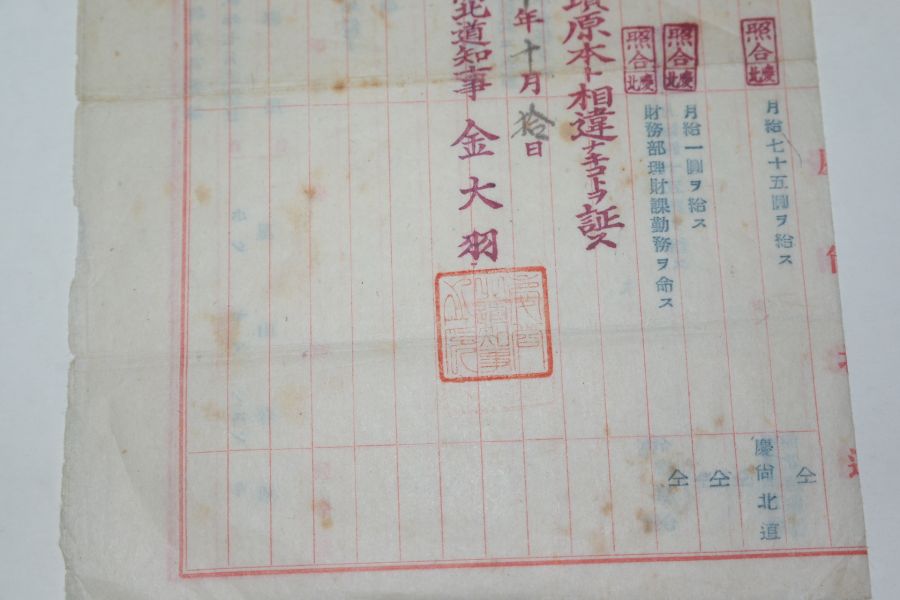 月給七十五圓ヲ給ス
仝
照合
慶北
慶尙北道
月給一圓ヲ給ス
仝
照合
慶北
財務部理財課勤務ヲ命ス
仝
照合
慶北
原本ト相違ナキコトヲ証ス
年十月拾日
北道知事 金大羽